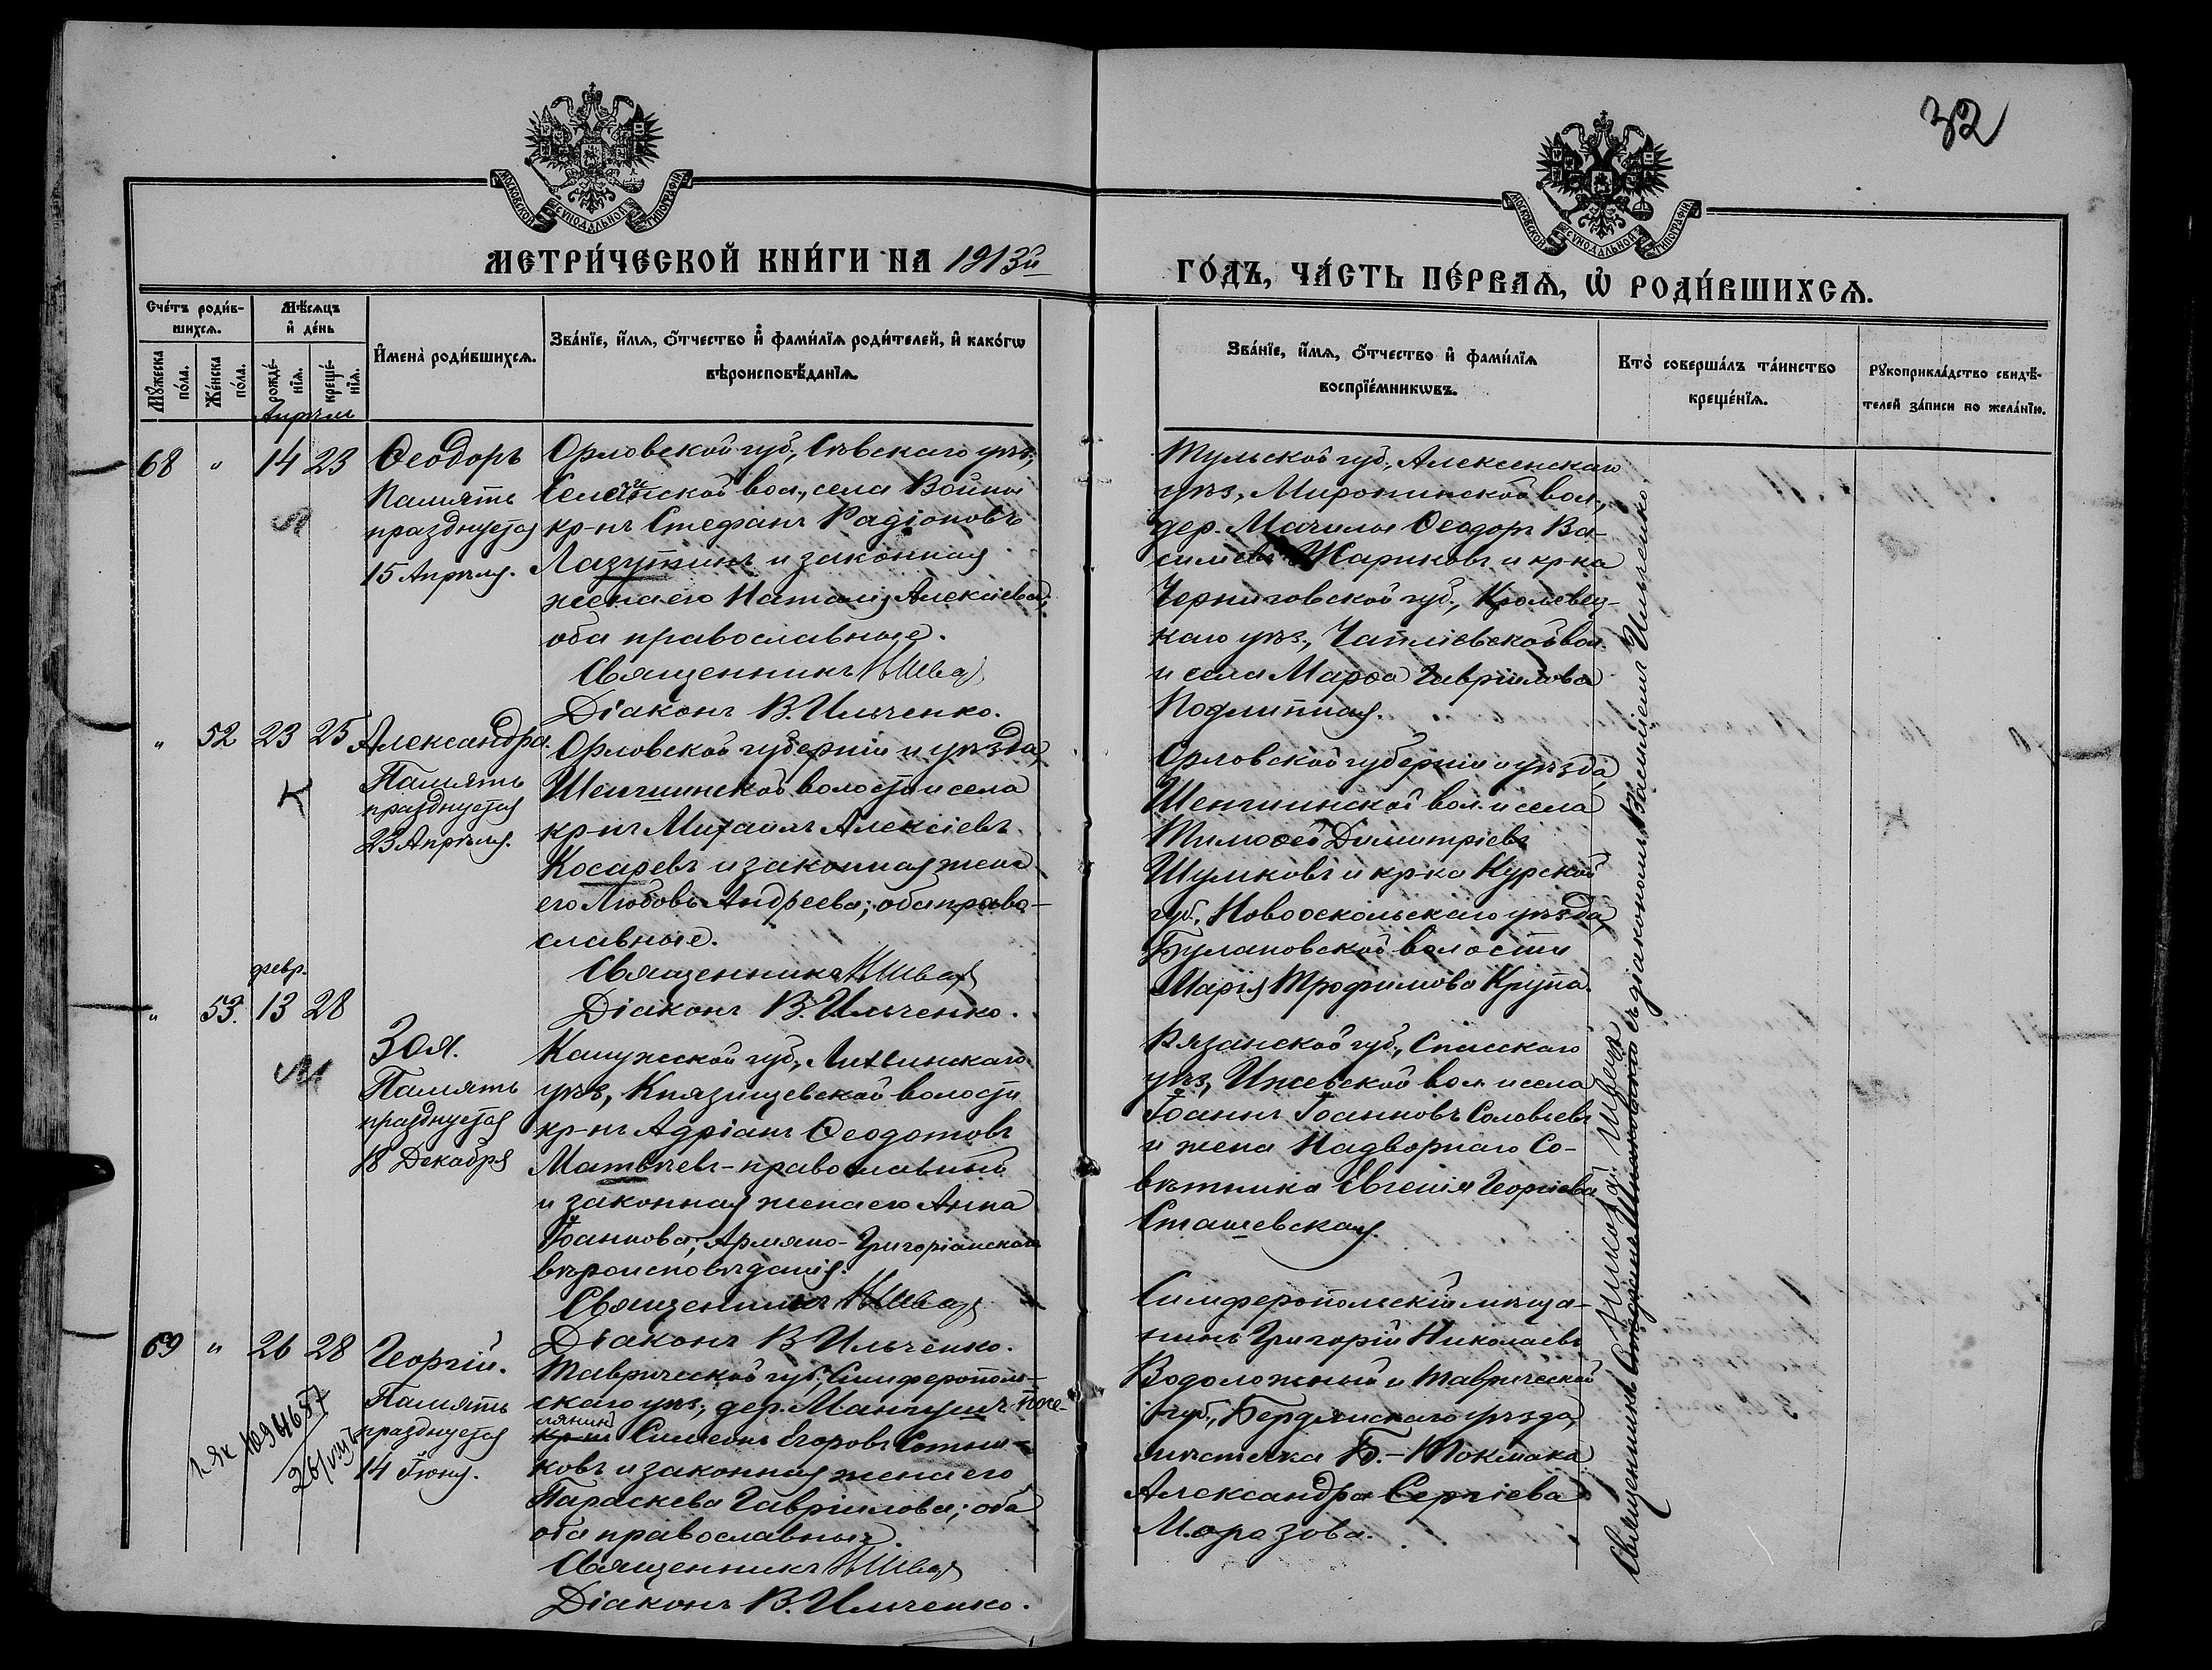 32
МОСКОВСКОЙ СѴНОДАЛЬНОЙ ТИПОГРАФІИ
МОСКОВСКОЙ СѴНОДАЛЬНОЙ ТИПОГРАФІИ
МЕТРИ́ЧЕСКОЙ КНИ́ГИ НА 1913й
ГО́ДЪ, ЧА́СТЬ ПЕ́РВАѦ, Ѡ РОДИ́ВШИХСѦ.
Сче́тъ роди́в-
шихсѧ.
Мꙋжеска
по́ла.
Же́нска
по́ла.
Мѣ́сѧцъ
и҆ де́нь
рожде́-
нїѧ.
креще́-
нїѧ.
И҆мена̀ роди́вшихсѧ.
Зва́нїе, и҆́мѧ, ѻ҆́тчество и҆ фами́лїѧ роди́телей, и҆ како́гѡ
вѣроисповѣ́данїѧ.
Зва́нїе, и҆́мѧ, ѻ҆́тчество и҆ фами́лїѧ
воспрїе́мникѡвъ.
Кто̀ соверша́лъ та́инство
креще́нїѧ.
Рꙋкоприкла́дство свидѣ́-
телей за́писи по жела́нїю.
Апрѣль
68 " 14 23 Ѳеодоръ
Память
празднуется
15 Апрѣля.
М
Орловской губ., Сѣвскаго уѣз.,
вол., села Войны
кр-нъ Стефанъ Радіоновъ
Лазуткинъ и законная
жена его Наталія Алексіева;
оба православные.
Священникъ Н Швец
Діаконъ В. Ильченко.
Тульской губ., Алексинскаго
уѣз., Миротинской вол.,
дер. Мачилы Ѳеодоръ Ва-
сильевъ Жариковъ и кр-ка
Черниговской губ., Кролевец-
каго уѣз., Чаплѣевской вол.
и села Марѳа Гавріилова
" 52 23 25 Александра.
Память
празднуется
23 Апрѣля.
К
Орловской губерніи и уѣзда,
Шеншинской волости и села
кр-нъ Михаилъ Алексіевъ
Косаревъ и законная жена
его Любовь Андреева; оба право-
славные.
Священникъ Н Швец
Діаконъ В. Ильченко.
Орловской губерніи и уѣзда
Шеншинской вол. и села
Тимоѳей Димитріевъ
Шумковъ и кр-ка Курской
губ., Новооскольскаго уѣзда
Булановской волости
Марія Трофимова Крупа.
февр.
" 53. 13 28
Зоя.
Память
празднуется
18 Декабря
М
Калужской губ., Лихвинскаго
уѣз., Князищевской волости
кр-нъ Адріанъ Ѳеодотовъ
Матвѣевъ - православный
и законная жена его Анна
Іоаннова, Армяно-Григоріанскаго
вѣроисповѣданія.
Священникъ Н Швец
Діаконъ В Ильченко.
Рязанской губ., Спасскаго
уѣз., Ижевской вол. и села
Іоаннъ Іоанновъ Соловьевъ
и жена Надворнаго Со-
вѣтника Евгенія Георгіева
Сташевская.
69 " 26 28 Георгій.
Память
празднуется
14 Іюня.
Таврической губ., Симферополь-
скаго уѣз., дер. Мангушъ посе-
лянинъ
кр-нъ Симеонъ Егоровъ Сотни-
ковъ и законная жена его
Параскева Гавріилова; оба
оба православные.
Священникъ Н Швец
Діаконъ В. Ильченко.
Симферопольскій мѣща-
нинъ Григорій Николаевъ
Водоложный и Таврической
губ., Бердянскаго уѣзда,
мѣстечка Б.-Токмака
Александра Сергіева
Морозова.
Священникъ Николай Швецъ съ діакономъ Василіемъ Ильченко.